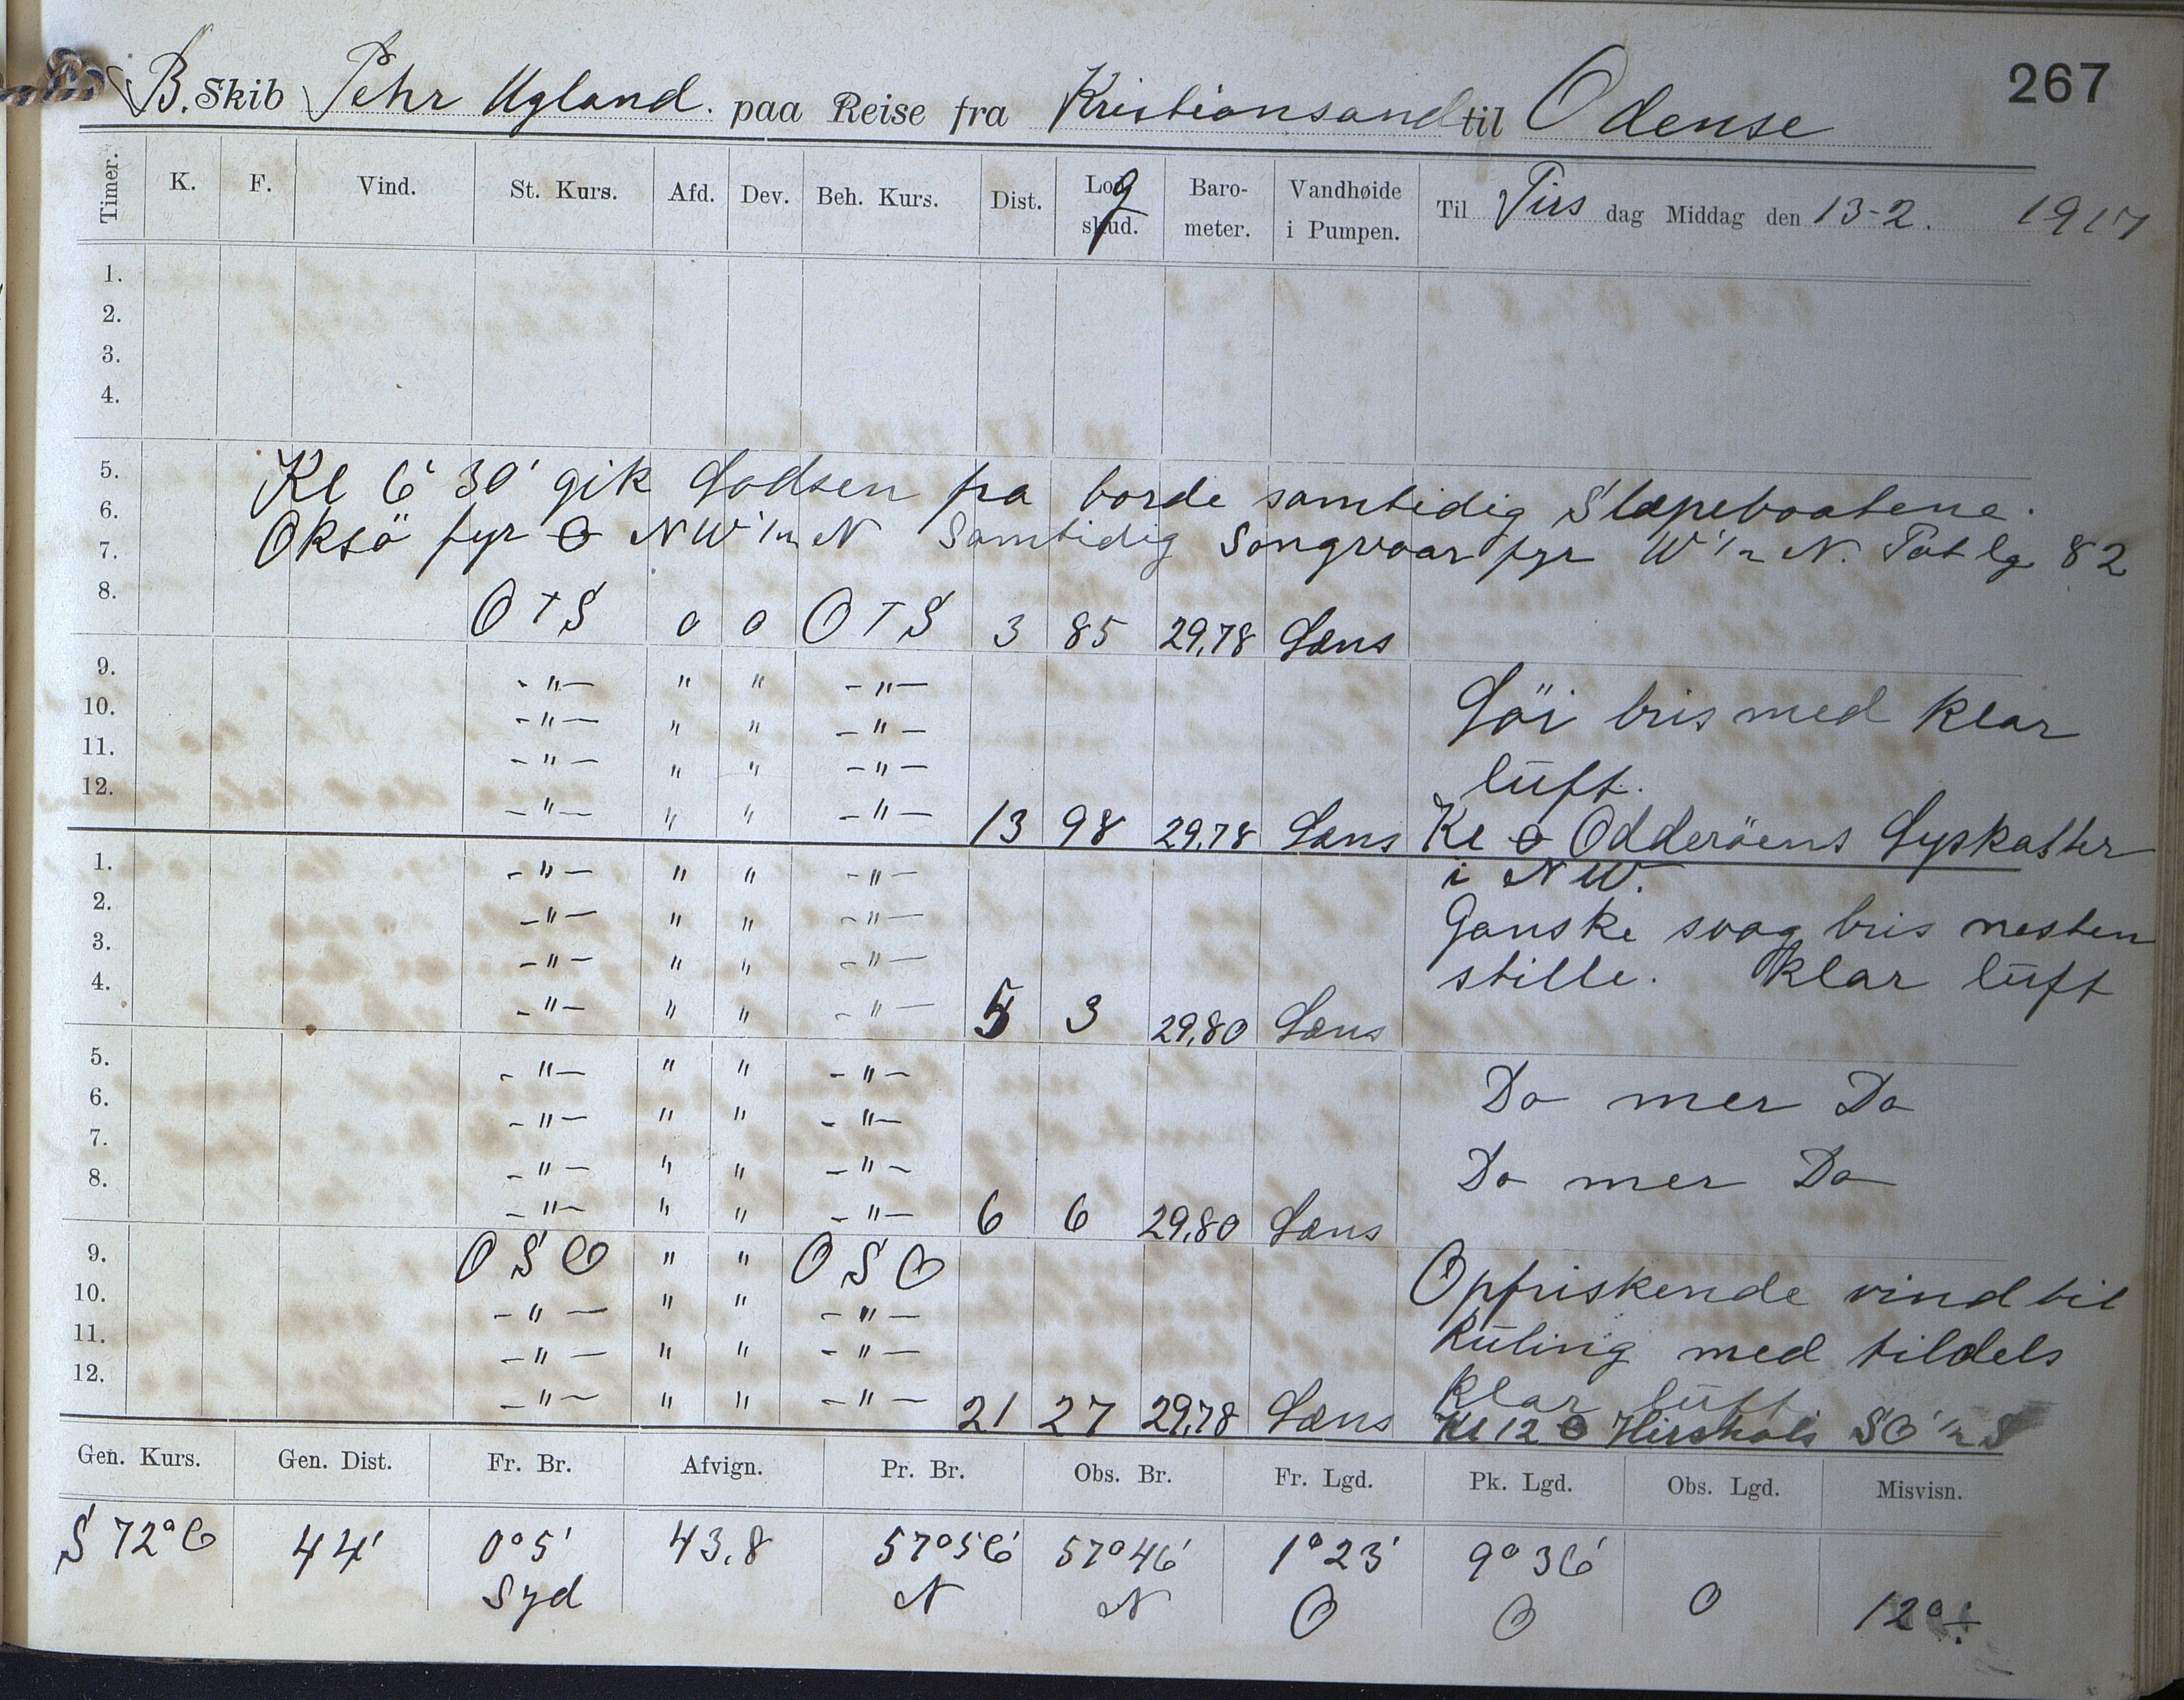 267
B. Skib Pehr Ugland. paa Reise fra Kristiansand til Odense
Timer. K. F. Vind. St. Kurs. Afd. Dev. Beh. Kurs. Dist. Log skud. Baro-meter. Vandhøide i Pumpen. Til Tirs dag Middag den 13-2. 1917
1.
2.
3.
4.
5.
Kl 6' 30' gik Lodsen fra borde samtidig Slæpebaatene.
6.
Oksö fyr NW 1/2 N Samtidig Songvaar fyr W 1/2 N. Pat lg 82
7.
8. O T S 0 0 O T S 3 85 29,78 Læns
9. -"- " " -"-
10. -"- " " -"- Löi bris med klar
11. -"- " " -"- luft.
12. -"- " " -"- 13 98 29,78 Læns Kl Odderöens Lyskaster
1. -"- " " -"- i NW.
2. -"- " " -"- Ganske svag bris nesten
3. -"- " " -"- stille. Klar luft
4. -"- " " -"- 5 3 29,80 Læns
5. -"- " " -"- Do mer Do
6. -"- " " -"-
7. -"- " " -"- Do mer Do
8. -"- " " -"- 6 6 29,80 Læns
9. O S O " " O S O Opfriskende vind til
10. -"- " " -"- Kuling med tildels
11. -"- " " -"- klar luft
12. -"- " " -"- 21 27 29,78 Læns Kl 12 Hirshals SO 1/2 S
Gen. Kurs. Gen. Dist. Fr. Br. Afvign. Pr. Br. Obs. Br. Fr. Lgd. Pk. Lgd. Obs. Lgd. Misvisn.
S 72° O 44' 0° 5' 43,8 57° 56' 57° 46' 1° 23' 9° 36'
Syd N N O O O 12° ÷